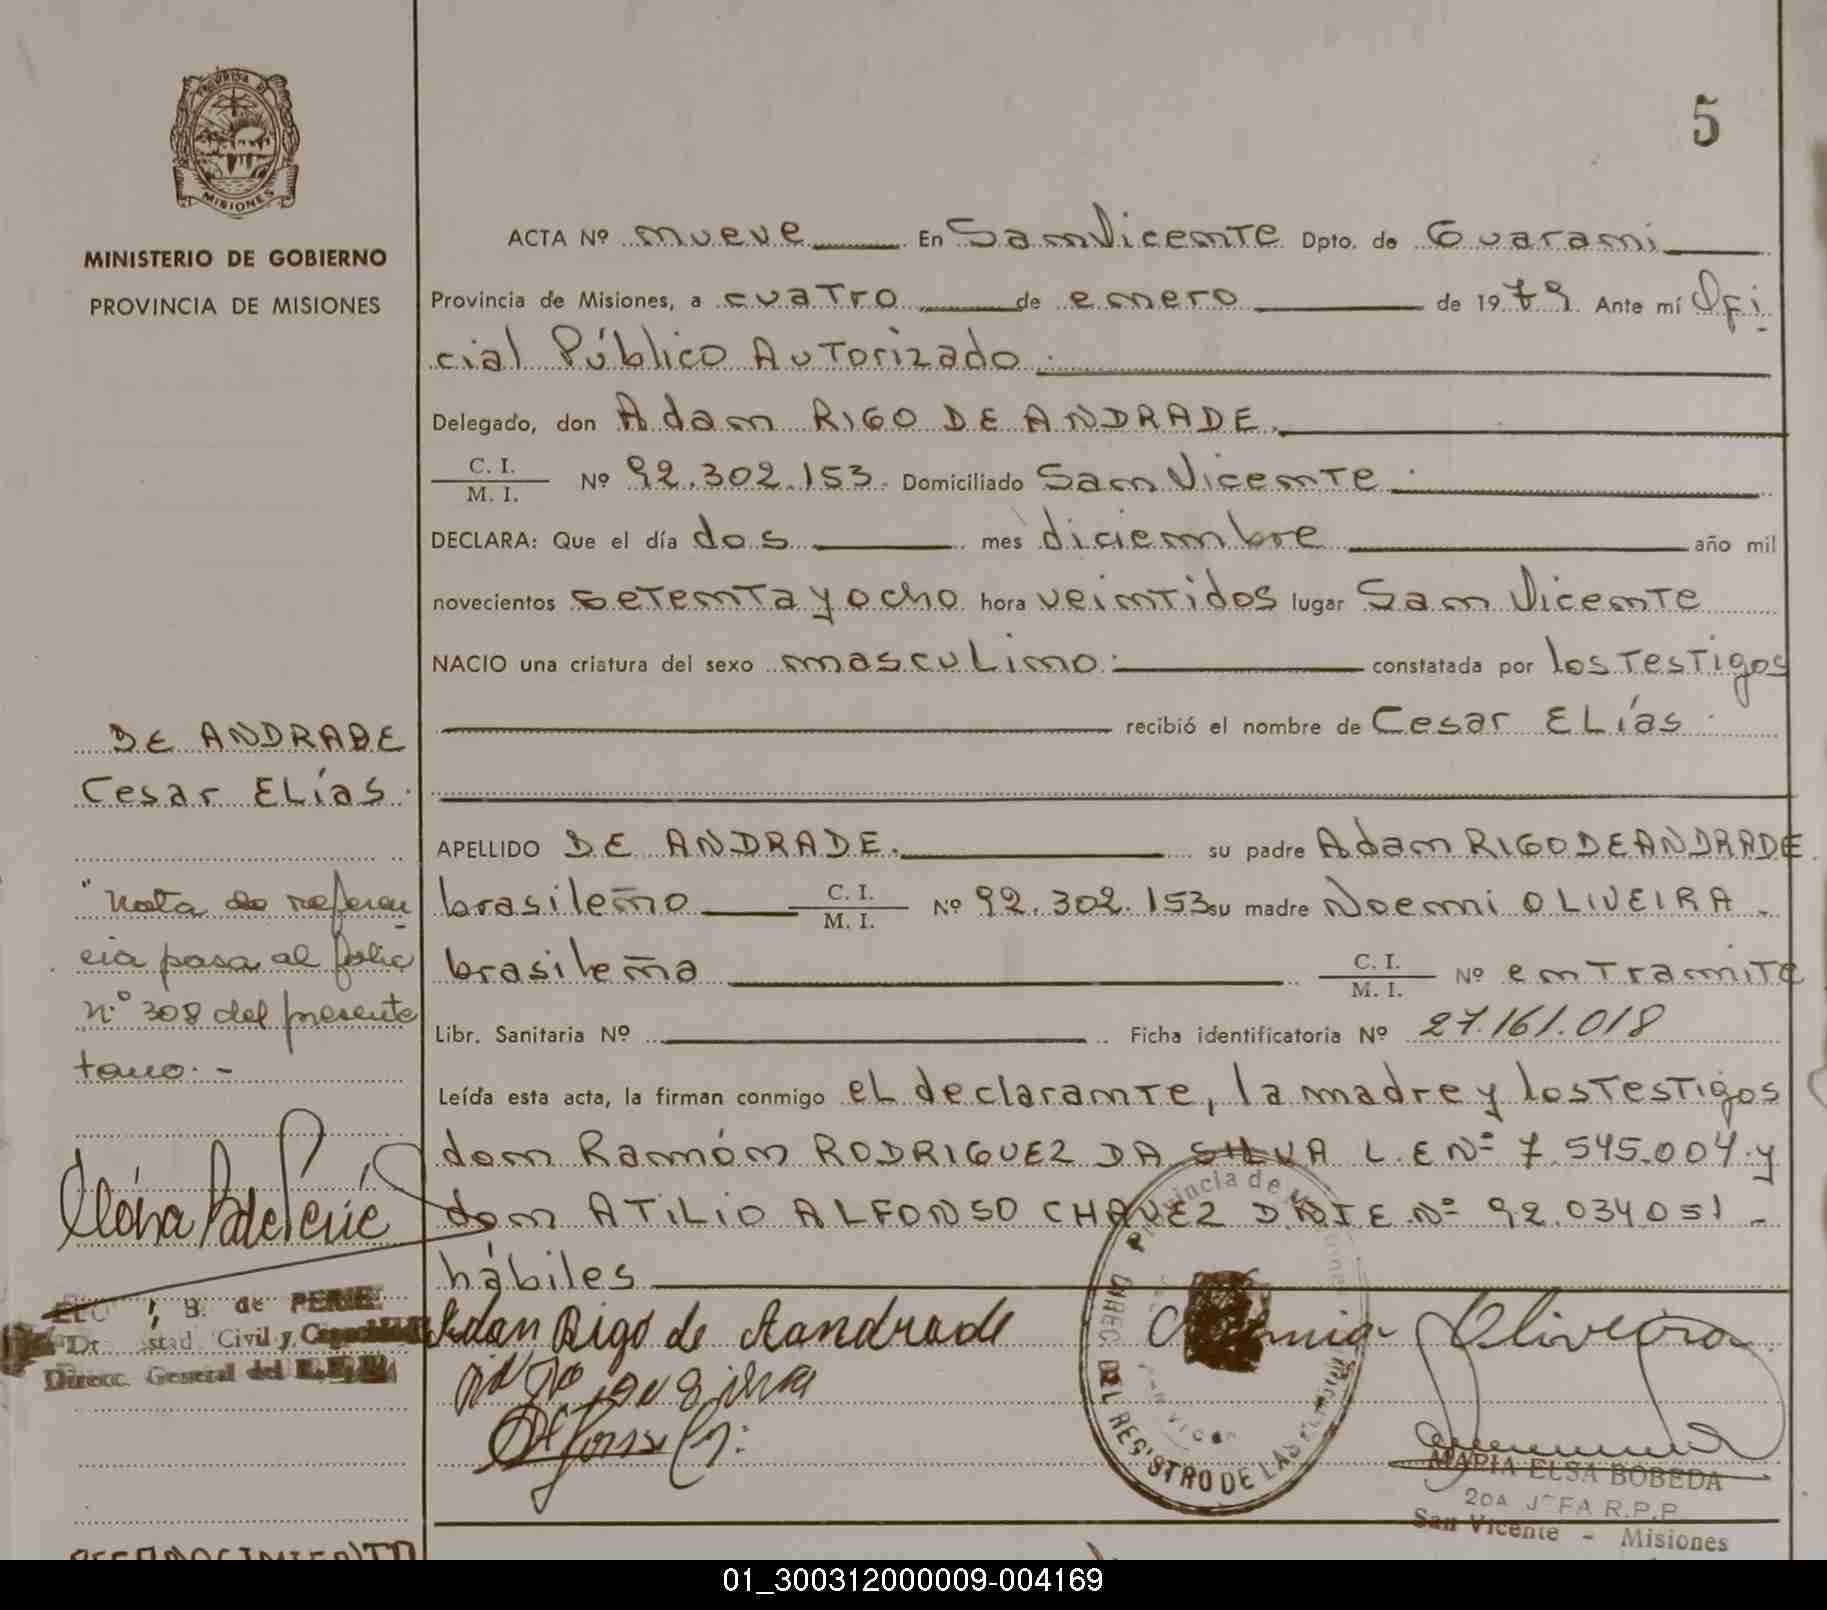 PROVINCIA DE
MISIONES
MINISTERIO DE GOBIERNO
PROVINCIA DE MISIONES
5
ACTA Nº nueve En San Vicente Dpto. de Guarani
Provincia de Misiones, a cuatro de enero de 1979. Ante mí Ofi
cial Público Autorizado.
Delegado, don Adam RIGO DE ANDRADE.
C. I.
M. I. Nº 92.302.153. Domiciliado San Vicente.
DECLARA: Que el día dos mes diciembre año mil
novecientos setenta y ocho hora veintidos lugar San Vicente
NACIO una criatura del sexo masculino. constatada por los testigos
recibió el nombre de Cesar ELías.
DE ANDRADE
Cesar ELías.
APELLIDO DE ANDRADE. su padre Adam RIGO DE ANDRADE.
brasileño C. I.
M. I. Nº 92.302.153 su madre Noemi OLIVEIRA.
brasileña C. I.
M. I. Nº en tramite
Libr. Sanitaria Nº Ficha identificatoria Nº 27.161.018
"Nota de referen
cia pasa al folio
n.º 308 del presente
tomo.-
Leída esta acta, la firman conmigo el declarante, la madre y los testigos
don Ramón RODRIGUEZ DA SILVA L.E Nº 7.545.004 y
don ATILIO ALFONSO CHAVEZ D.N.I E. Nº 92.034.051.-
hábiles
B. de PERIE
stad Civil y
Direcc. General del
Adan Rigo de Aandrade
Oliveira
Provincia de Misiones
DIREC. DEL REGISTRO DE LAS
MARIA ELSA BOBEDA
2DA JEFA R.P.P
San Vicente - Misiones
RECONOCIMIENTO
01_300312000009-004169